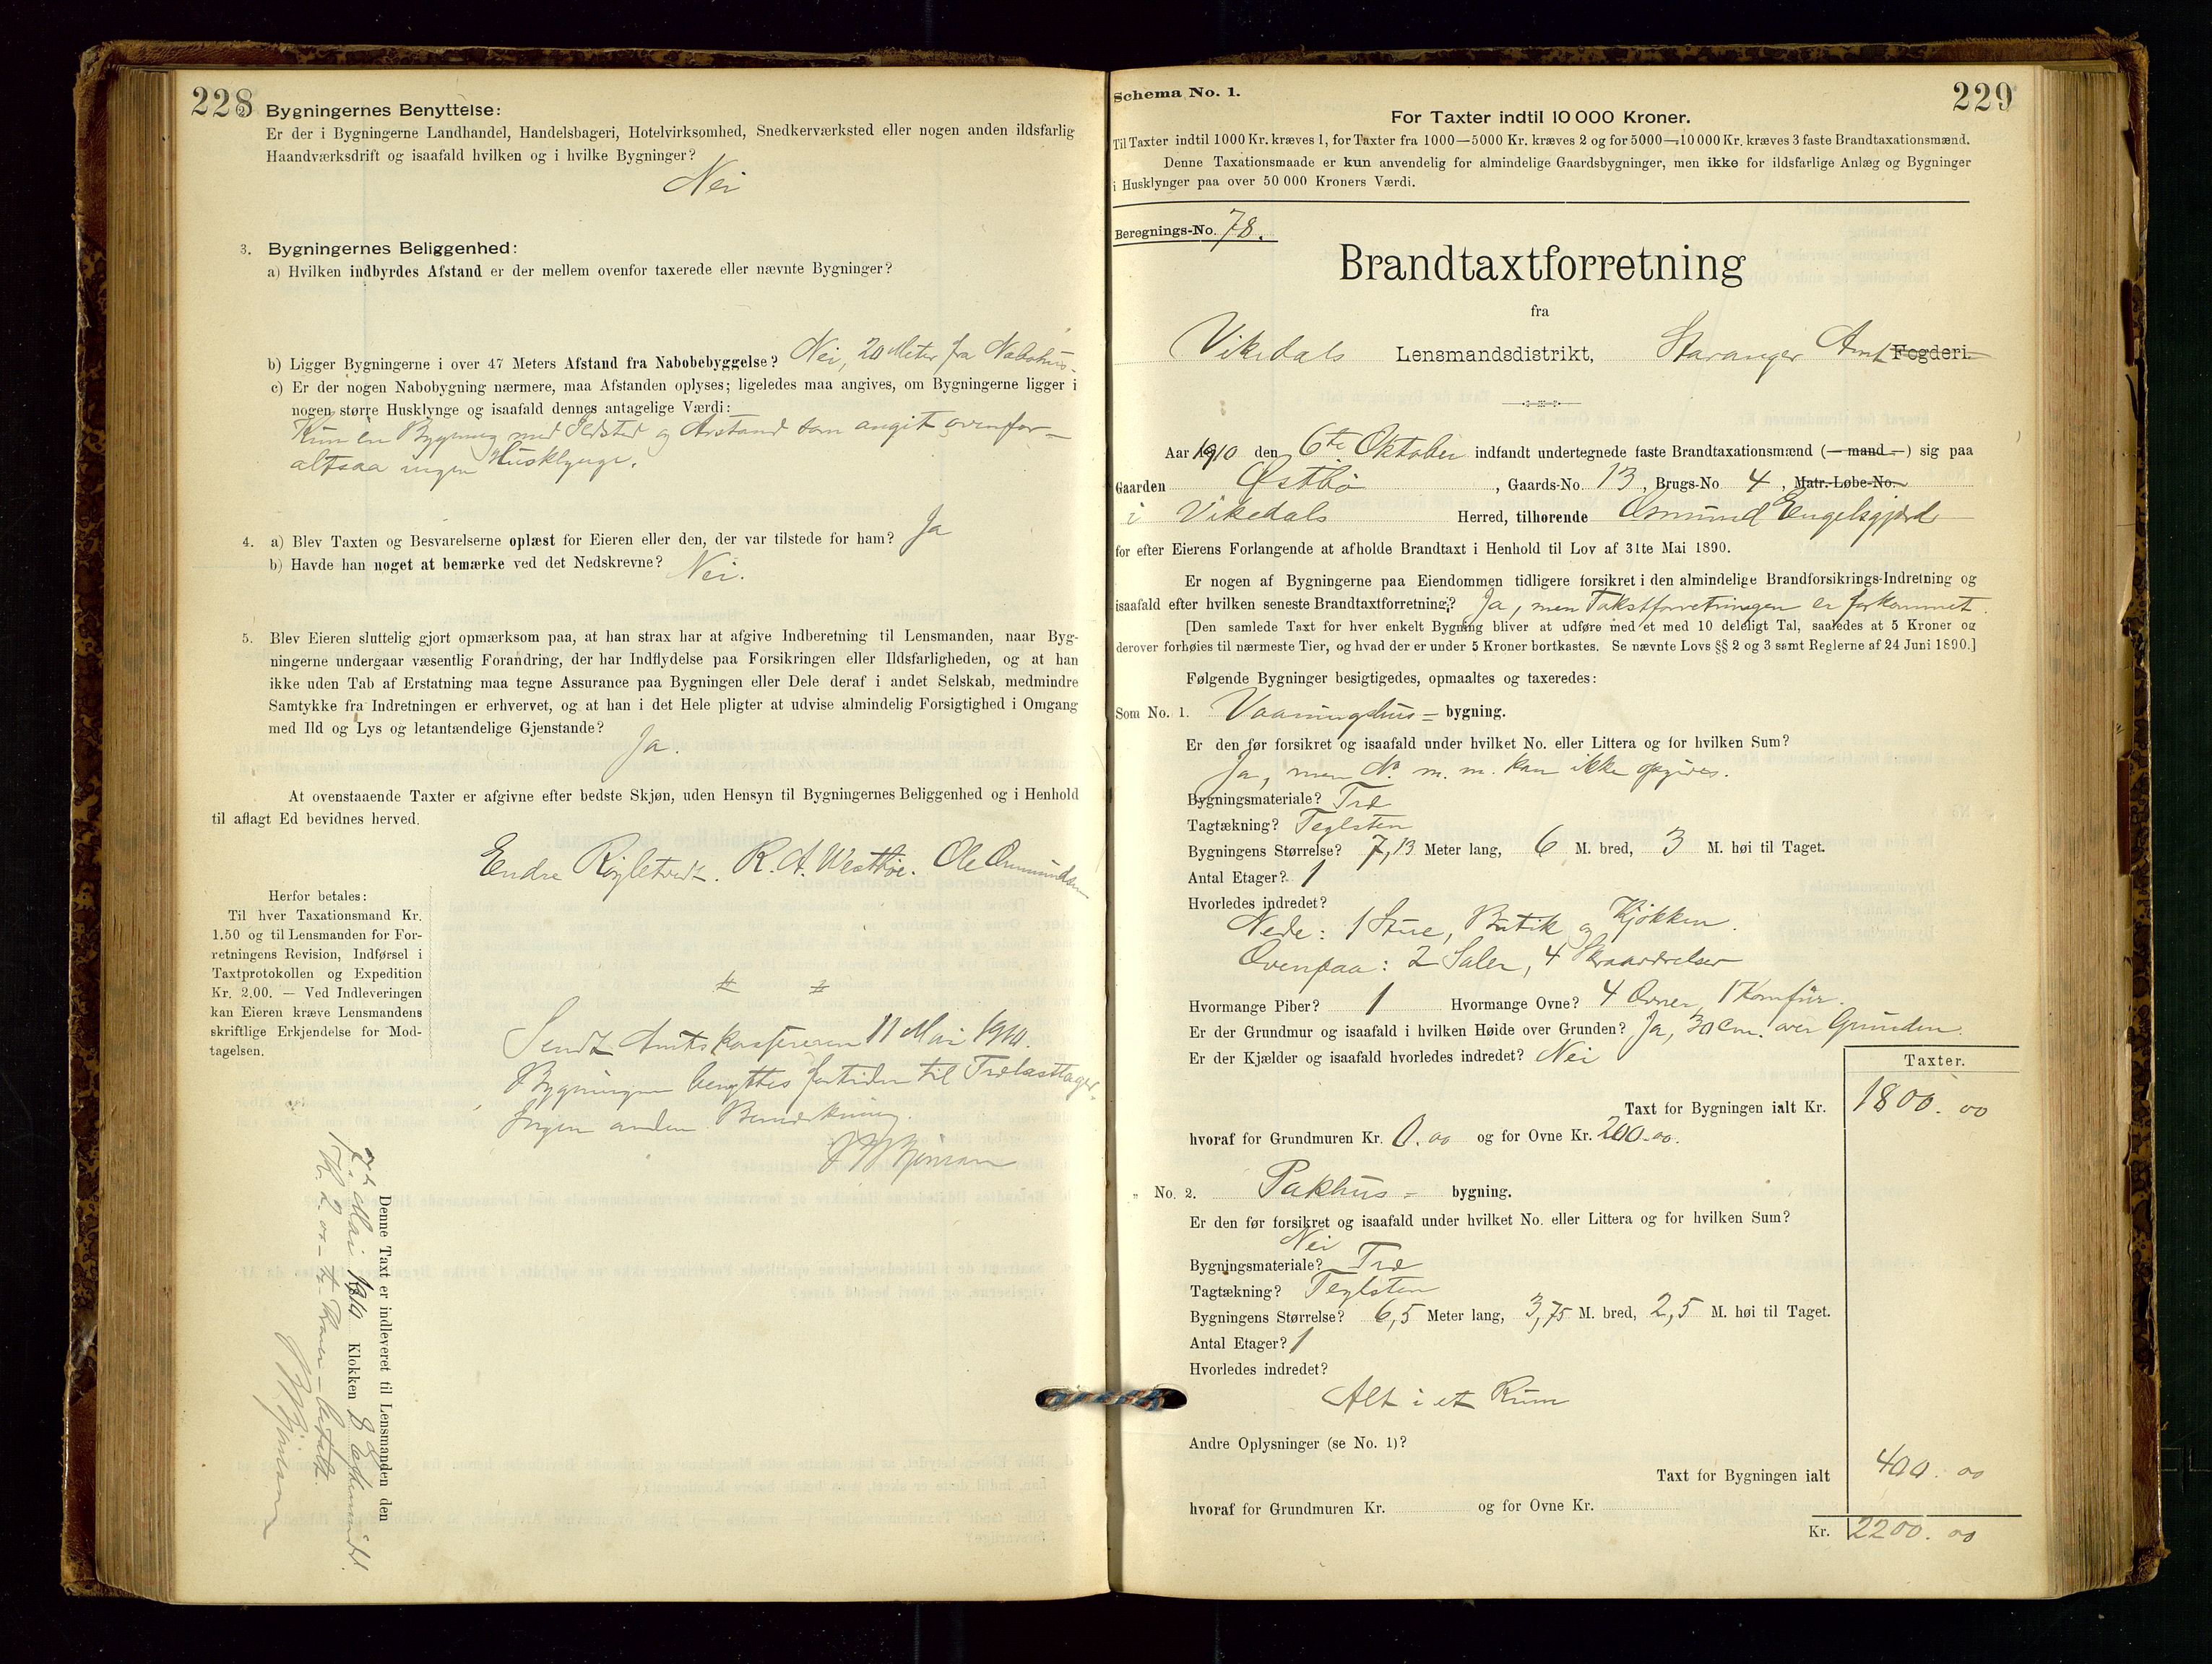 228
Bygningernes Benyttelse:
Er der i Bygningerne Landhandel, Handelsbageri, Hotelvirksomhed, Snedkerværksted eller nogen anden ildsfarlig
Haandværksdrift og isaafald hvilken og i hvilke Bygninger?
Nei
3. Bygningernes Beliggenhed:
a) Hvilken indbyrdes Afstand er der mellem ovenfor taxerede eller nævnte Bygninger?
b) Ligger Bygningerne i over 47 Meters Afstand fra Nabobebyggelse? Nei, 20 Meter fra Nabohus.
c) Er der nogen Nabobygning nærmere, maa Afstanden oplyses; ligeledes maa angives, om Bygningerne ligger i
nogen større Husklynge og isaafald dennes antagelige Værdi:
Kun en Bygning med Ildsted og Avstand som angit ovenfor –
altsaa ingen Husklynge.
4. a) Blev Taxten og Besvarelserne oplæst for Eieren eller den, der var tilstede for ham? Ja
b) Havde han noget at bemærke ved det Nedskrevne? Nei.
5. Blev Eieren sluttelig gjort opmærksom paa, at han strax har at afgive Indberetning til Lensmanden, naar Byg-
ningerne undergaar væsentlig Forandring, der har Indflydelse paa Forsikringen eller Ildsfarligheden, og at han
ikke uden Tab af Erstatning maa tegne Assurance paa Bygningen eller Dele deraf i andet Selskab, medmindre
Samtykke fra Indretningen er erhvervet, og at han i det Hele pligter at udvise almindelig Forsigtighed i Omgang
med Ild og Lys og letantændelige Gjenstande?
Ja.
At ovenstaaende Taxter er afgivne efter bedste Skjøn, uden Hensyn til Bygningernes Beliggenhed og i Henhold
til aflagt Ed bevidnes herved.
Endre Røgletvedt. R. A. Westbøe. Ole Omundsen
Herfor betales:
Til hver Taxationsmand Kr.
1.50 og til Lensmanden for For-
retningens Revision, Indførsel i
Taxtprotokollen og Expedition
Kr. 2.00. — Ved Indleveringen
kan Eieren kræve Lensmandens
skriftlige Erkjendelse for Mod-
tagelsen.
Sendt Amtskassereren 11 Mai 1910.
Bygningen benyttes fortiden til Trælastlager.
Ingen anden Bemærkning.
Denne Taxt er indleveret til Lensmanden den
7de Mai 1910 Klokken 8 Eftermiddl.
Kr. 2.00 – to – Kroner – betalt.
229
Schema No. 1.
For Taxter indtil 10 000 Kroner.
Til Taxter indtil 1000 Kr. kræves 1, for Taxter fra 1000—5000 Kr. kræves 2 og for 5000—10000 Kr. kræves 3 faste Brandtaxationsmænd.
Denne Taxationsmaade er kun anvendelig for almindelige Gaardsbygninger, men ikke for ildsfarlige Anlæg og Bygninger
i Husklynger paa over 50 000 Kroners Værdi.
Beregnings-No. 78.
Brandtaxtforretning
fra
Vikedals Lensmandsdistrikt, Stavanger Amt Fogderi.
Aar 1910 den 6te Oktober indfandt undertegnede faste Brandtaxationsmænd (— mand —) sig paa
Gaarden Østbø, Gaards-No. 13, Brugs-No 4, Matr.-Løbe-No.
i Vikedals Herred, tilhørende Omund Engelsgjerd
for efter Eierens Forlangende at afholde Brandtaxt i Henhold til Lov af 31te Mai 1890.
Er nogen af Bygningerne paa Eiendommen tidligere forsikret i den almindelige Brandforsikrings-Indretning og
isaafald efter hvilken seneste Brandtaxtforretning? Ja, men Takstforretningen er forkommet.
[Den samlede Taxt for hver enkelt Bygning bliver at udføre med et med 10 deleligt Tal, saaledes at 5 Kroner og
derover forhøies til nærmeste Tier, og hvad der er under 5 Kroner bortkastes. Se nævnte Lovs §§ 2 og 3 samt Reglerne af 24 Juni 1890.]
Følgende Bygninger besigtigedes, opmaaltes og taxeredes:
Som No. 1. Vaaningshus = bygning.
Er den før forsikret og isaafald under hvilket No. eller Littera og for hvilken Sum?
Ja, men No. m. m. kan ikke opgives.
Bygningsmateriale? Træ
Tagtækning? Teglsten
Bygningens Størrelse? 7,13 Meter lang, 6 M. bred, 3 M. høi til Taget.
Antal Etager? 1
Hvorledes indredet?
Nede: 1 Stue, Butik og Kjøkken.
Ovenpaa: 2 Saler, 4 Skraaværelser
Hvormange Piber? 1 Hvormange Ovne? 4 Ovner, 1 Komfur.
Er der Grundmur og isaafald i hvilken Høide over Grunden? Ja, 30 cm. over Grunden.
Er der Kjælder og isaafald hvorledes indredet? Nei
Taxter.
Taxt for Bygningen ialt Kr. 1800.00
hvoraf for Grundmuren Kr. 0.00 og for Ovne Kr. 200.00.
„ No. 2. Pakhus = bygning.
Er den før forsikret og isaafald under hvilket No. eller Littera og for hvilken Sum?
Nei
Bygningsmateriale? Træ
Tagtækning? Teglsten
Bygningens Størrelse? 6,5 Meter lang, 3,75 M. bred, 2,5 M. høi til Taget.
Antal Etager? 1
Hvorledes indredet?
Alt i et Rum
Andre Oplysninger (se No. 1)?
Taxt for Bygningen ialt 400.00
hvoraf for Grundmuren Kr. og for Ovne Kr.
Kr. 2200.00